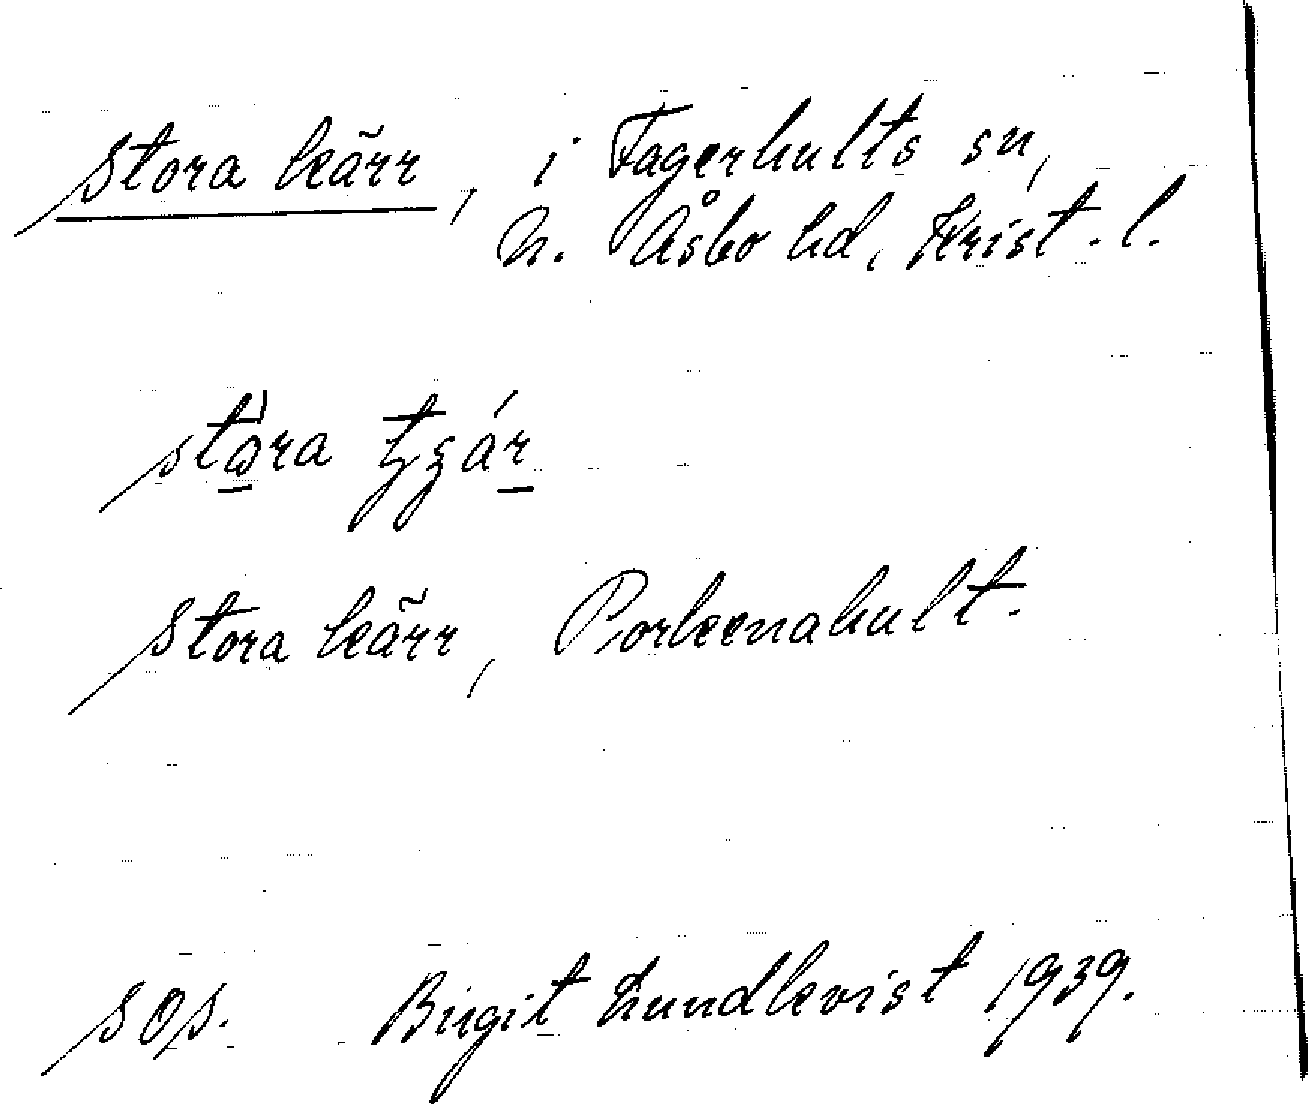 Stora kärr, i Fagerhults sn,
N. Åsbo hd, Krist. l.
Stora kärr, Porkenahult.
SOS. Birgit Lundkvist 1939.